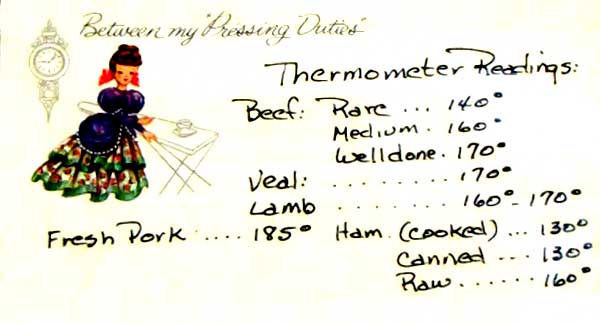 Between my "Pressing Duties"
Thermometer Readings:
Beef: Rare ... 140°
Medium . 160°
Welldone . 170°
Veal: ........ 170°
Lamb ........ 160° - 170°
Fresh Pork .... 185° Ham (cooked) ... 130°
Canned --- 130°
Raw ...... 160°